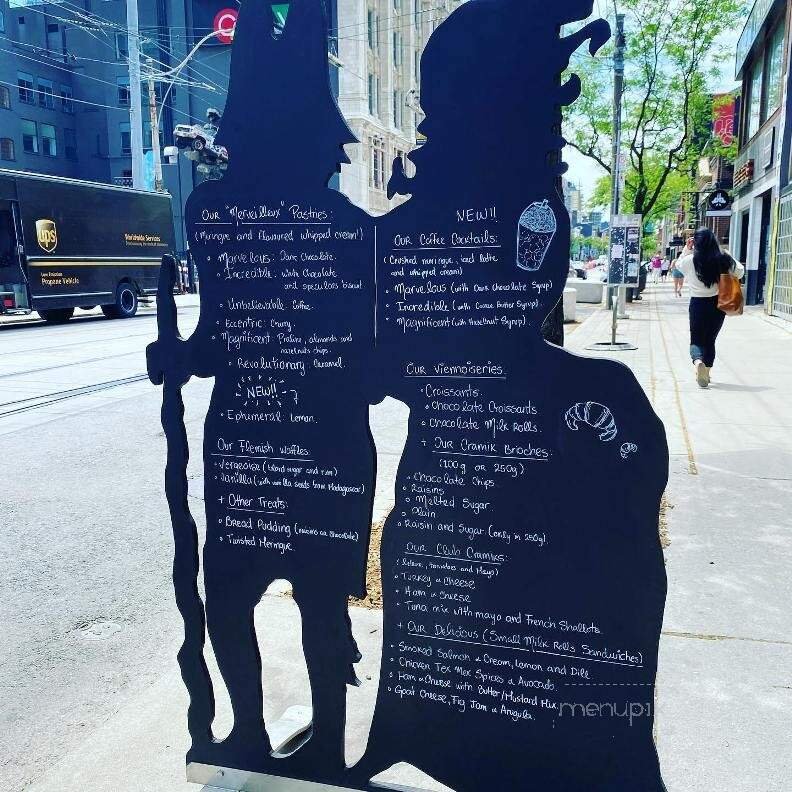 ups
Worldwide Services
Low Emission
Propane Vehicle
Our "Merveilleux" Pastries:
(Meringue and flavoured whipped cream!)
• Marvelous: Dark Chocolate.
• Incredible: White Chocolate
and speculoos biscuit
• Unbelievable: Coffee.
• Eccentric: Cherry
• Magnificent: Praline, almonds and
hazelnuts chips.
• Revolutionary: Caramel.
NEW!!
• Ephemeral: Lemon.
Our Flemish Waffles:
• Vergeoise (blond sugar and rum)
• Vanilla (with vanilla seeds from Madagascar)
+ Other Treats:
• Bread Pudding (raisins or chocolate)
• Twisted Meringue
NEW!!
Our Coffee Cocktails:
(Crushed meringue, iced latte
and whipped cream)
• Marvelous (with Dark chocolate Syrup)
• Incredible (with Cookie Butter Syrup).
• Magnificent (with Hazelnut Syrup).
Our Viennoiseries:
• Croissants
• Chocolate Croissants
• Chocolate Milk Rolls.
+ Our Cramik Brioches:
(100g or 250g)
• Chocolate Chips
• Raisins
• Melted Sugar
• Plain
• Raisin and Sugar (only in 250g).
Our Club Cramiks:
(lettuce, tomatoes and Mayo)
• Turkey & Cheese
• Ham & Cheese
• Tuna mix with mayo and French Shallots.
+ Our Delicious (Small Milk Rolls Sandwiches)
• Smoked Salmon & Cream, Lemon and Dill.
• Chicken Tex Mex Spices & Avocado.
• Ham & Cheese with Butter/Mustard Mix.
• Goat Cheese, Fig Jam & Arugula.
menupix